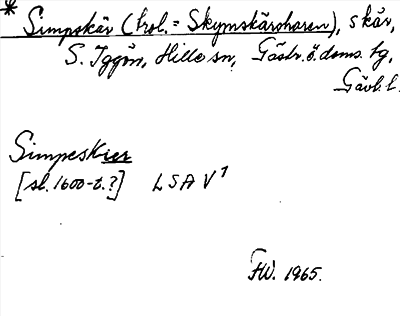 * Simpskär (trol. = Skymskärsharen), skär,
S. Iggön, Hille sn, Gästr. ö. doms. tg,
Gävl. l.
Simpeskier
[sl. 1600-t.?] LSA V1
FW. 1965.